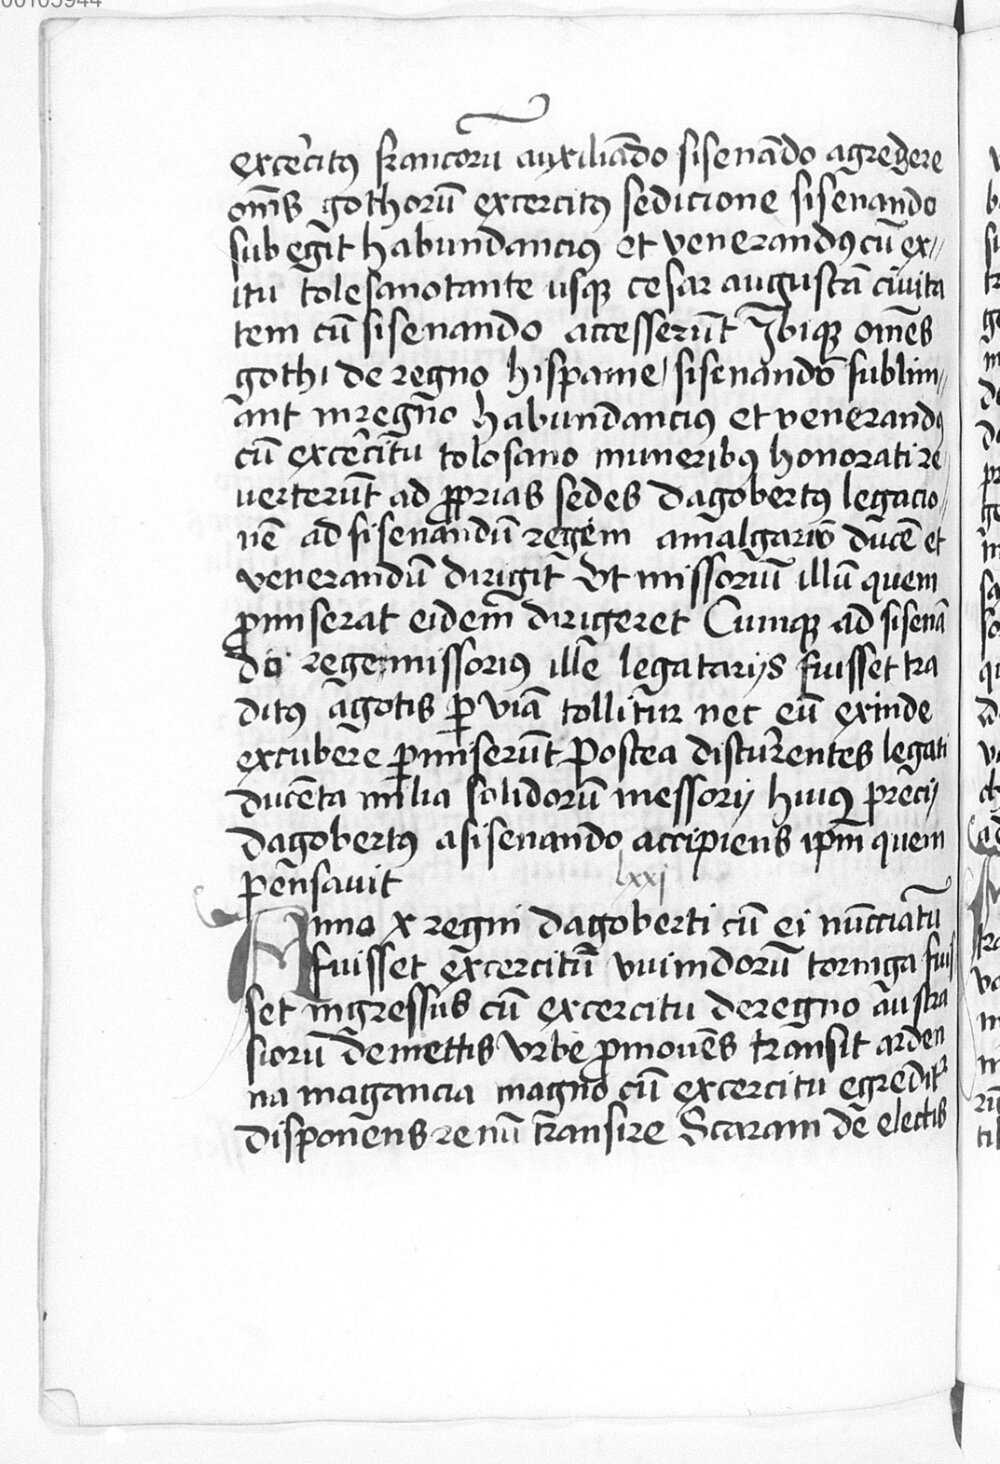 00105944
excercitꝰ francorū auxiliādo sisenādo agredere
om̄s gothorū excercitꝰ sedicione sisenando
subegit habundancius et venerandꝰ cū ex//
itu tolesanotante usqꝫ cesar augustā civita
tem cū sisenando accesserūt Ibiqꝫ om̄es
gothi de regno hispanie sisenandō sublim//
ant in regno habundancius et venerandꝰ
cū excercitu tolosano muneribꝰ honorati re
uerterūt ad ꝓprias sedes dagobertꝰ legacio
nē ad sisenandū regem amalgariō ducē et
venerandū dirigit Ut missoriū illū quem
ꝓmiserat eidem dirigeret Cumqꝫ ad sisenā
dō rege missoriꝰ ille legatariis fuisset tra
ditꝰ agotis ꝑ viā tollitur nec eū exinde
excubere ꝑmiserūt Postea discurentes legati
ducenta milia solidorū messorij huiꝰ precij
dagobertꝰ a sisenando accipiens ipm̄ quem
pensavit
lxxi
Anno x regni dagoberti cū ei nūcciatū
fuisset excercitū vuinidorū toringa fuis
set ingressus cū excercitu de regno austra
siorū de mettis urbe ꝓmouēs transit arden
na magancia magno cū excercitu egreditr
disponens renū transire Scaram de electis